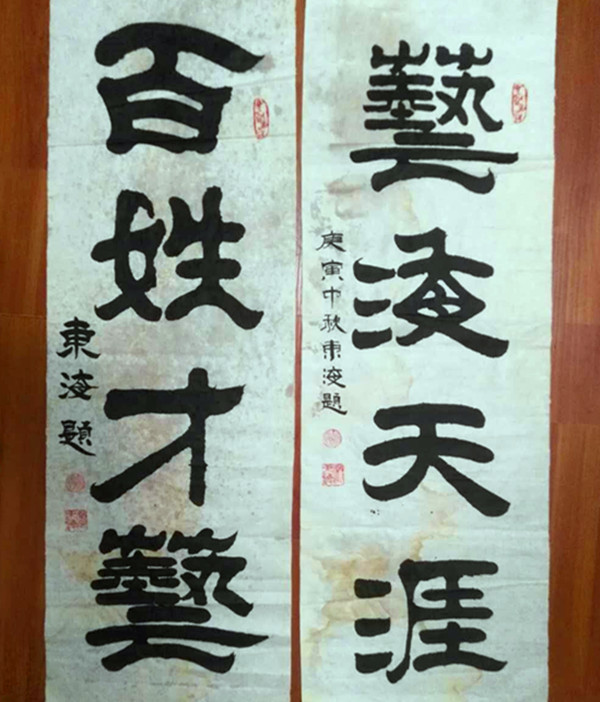 藝海天涯
庚寅中秋東海題
百姓才藝
東海題